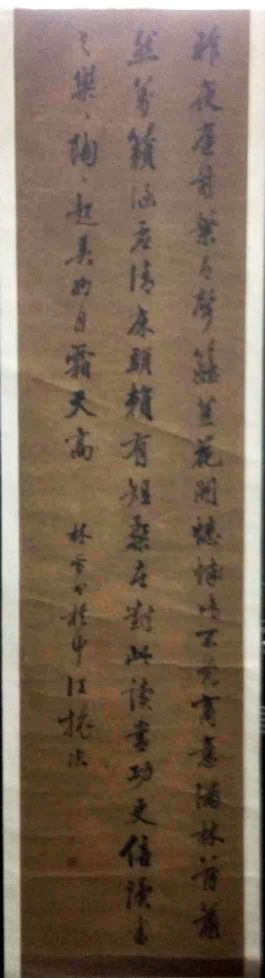 昨夜庭前葉有聲籬荳花開蟋蟀鳴不覺商意滿林薄蕭
然萬籟涵虛清床頭賴有短檠在對此讀書功更倍讀書
之樂〻陶〻起弄明月霜天高
林 中江振